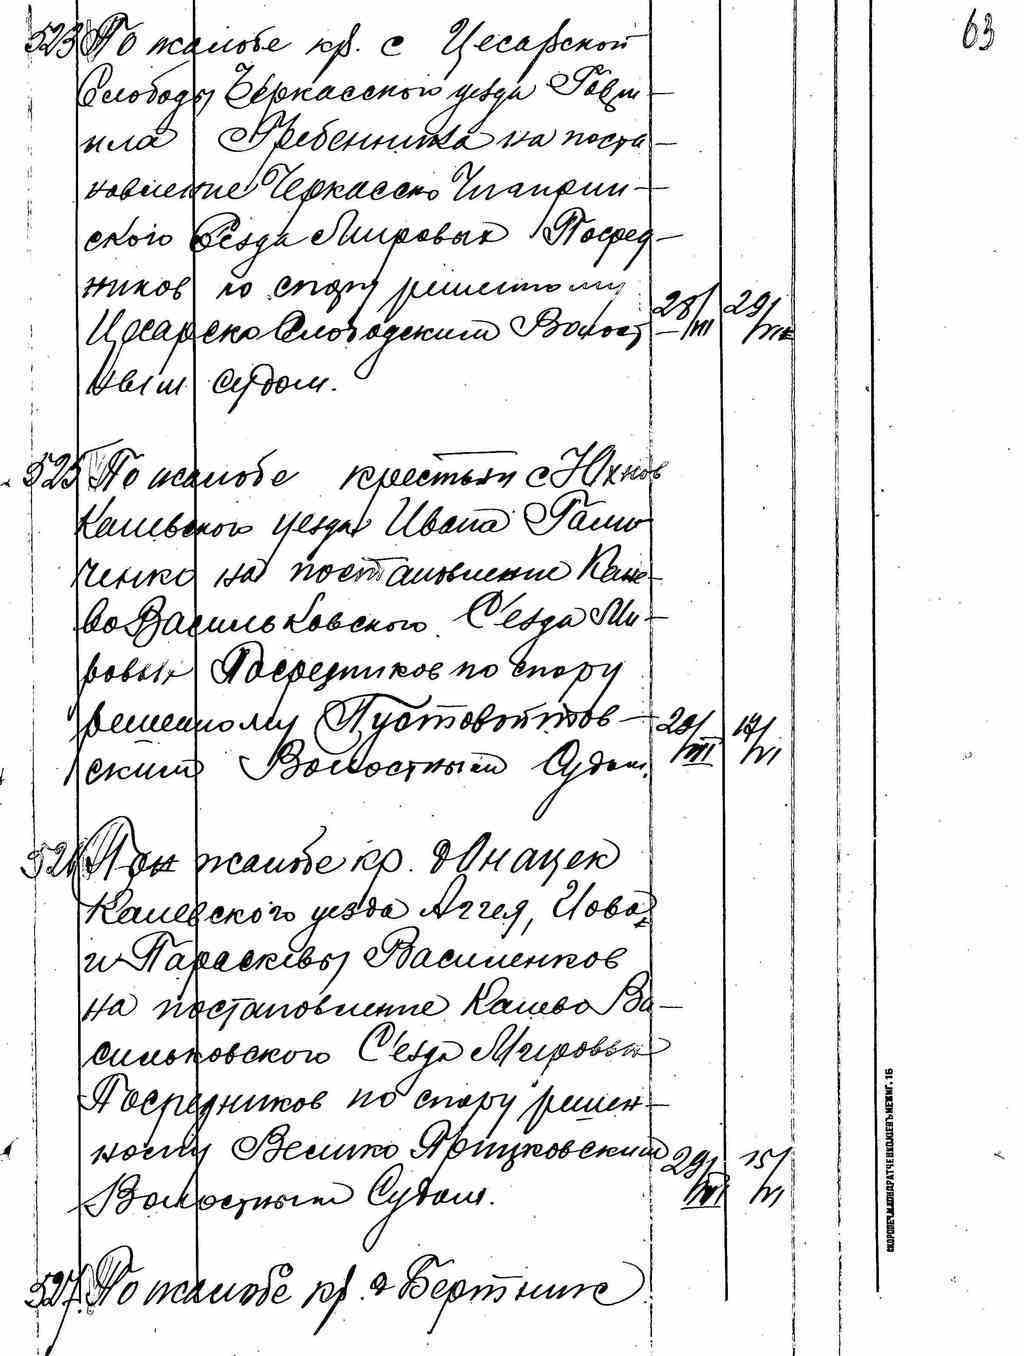 63
523 По жалобе кр. с Цесарской
Слободы Черкасского уезда Гаври-
ила Гребенника на поста-
новление Черкасско Чигирин-
ского Сезда Мировых Посред-
ников по спору решенному
Цесарско Слободским Волост- 28/III 29/
ным судом.
525 По жалобе крестьян с Юхнов
Каневского уезда Ивана Галю
ченко на постановление Кане-
во Васильковского С'езда Ми-
ровых Посредников по спору
решенному Пустовойтов-
ским Волостным Судом. 29/III 17/VI
526 По жалобе кр. д Юнацек
Каневского уезда Аггея, Иова
и Параскевы Василенков
на постановление Канево Ва-
сильковского С'езда Мировых
Посредников по спору решен-
ному Велико Прицковским
Волостным Судом. 29/III 15/VI
527. По жалобе кр. д Бертник
СКОРОПЕЧ. М. КОНДРАТЧЕНКО КІЕВЪ МЕЖИГ. 16